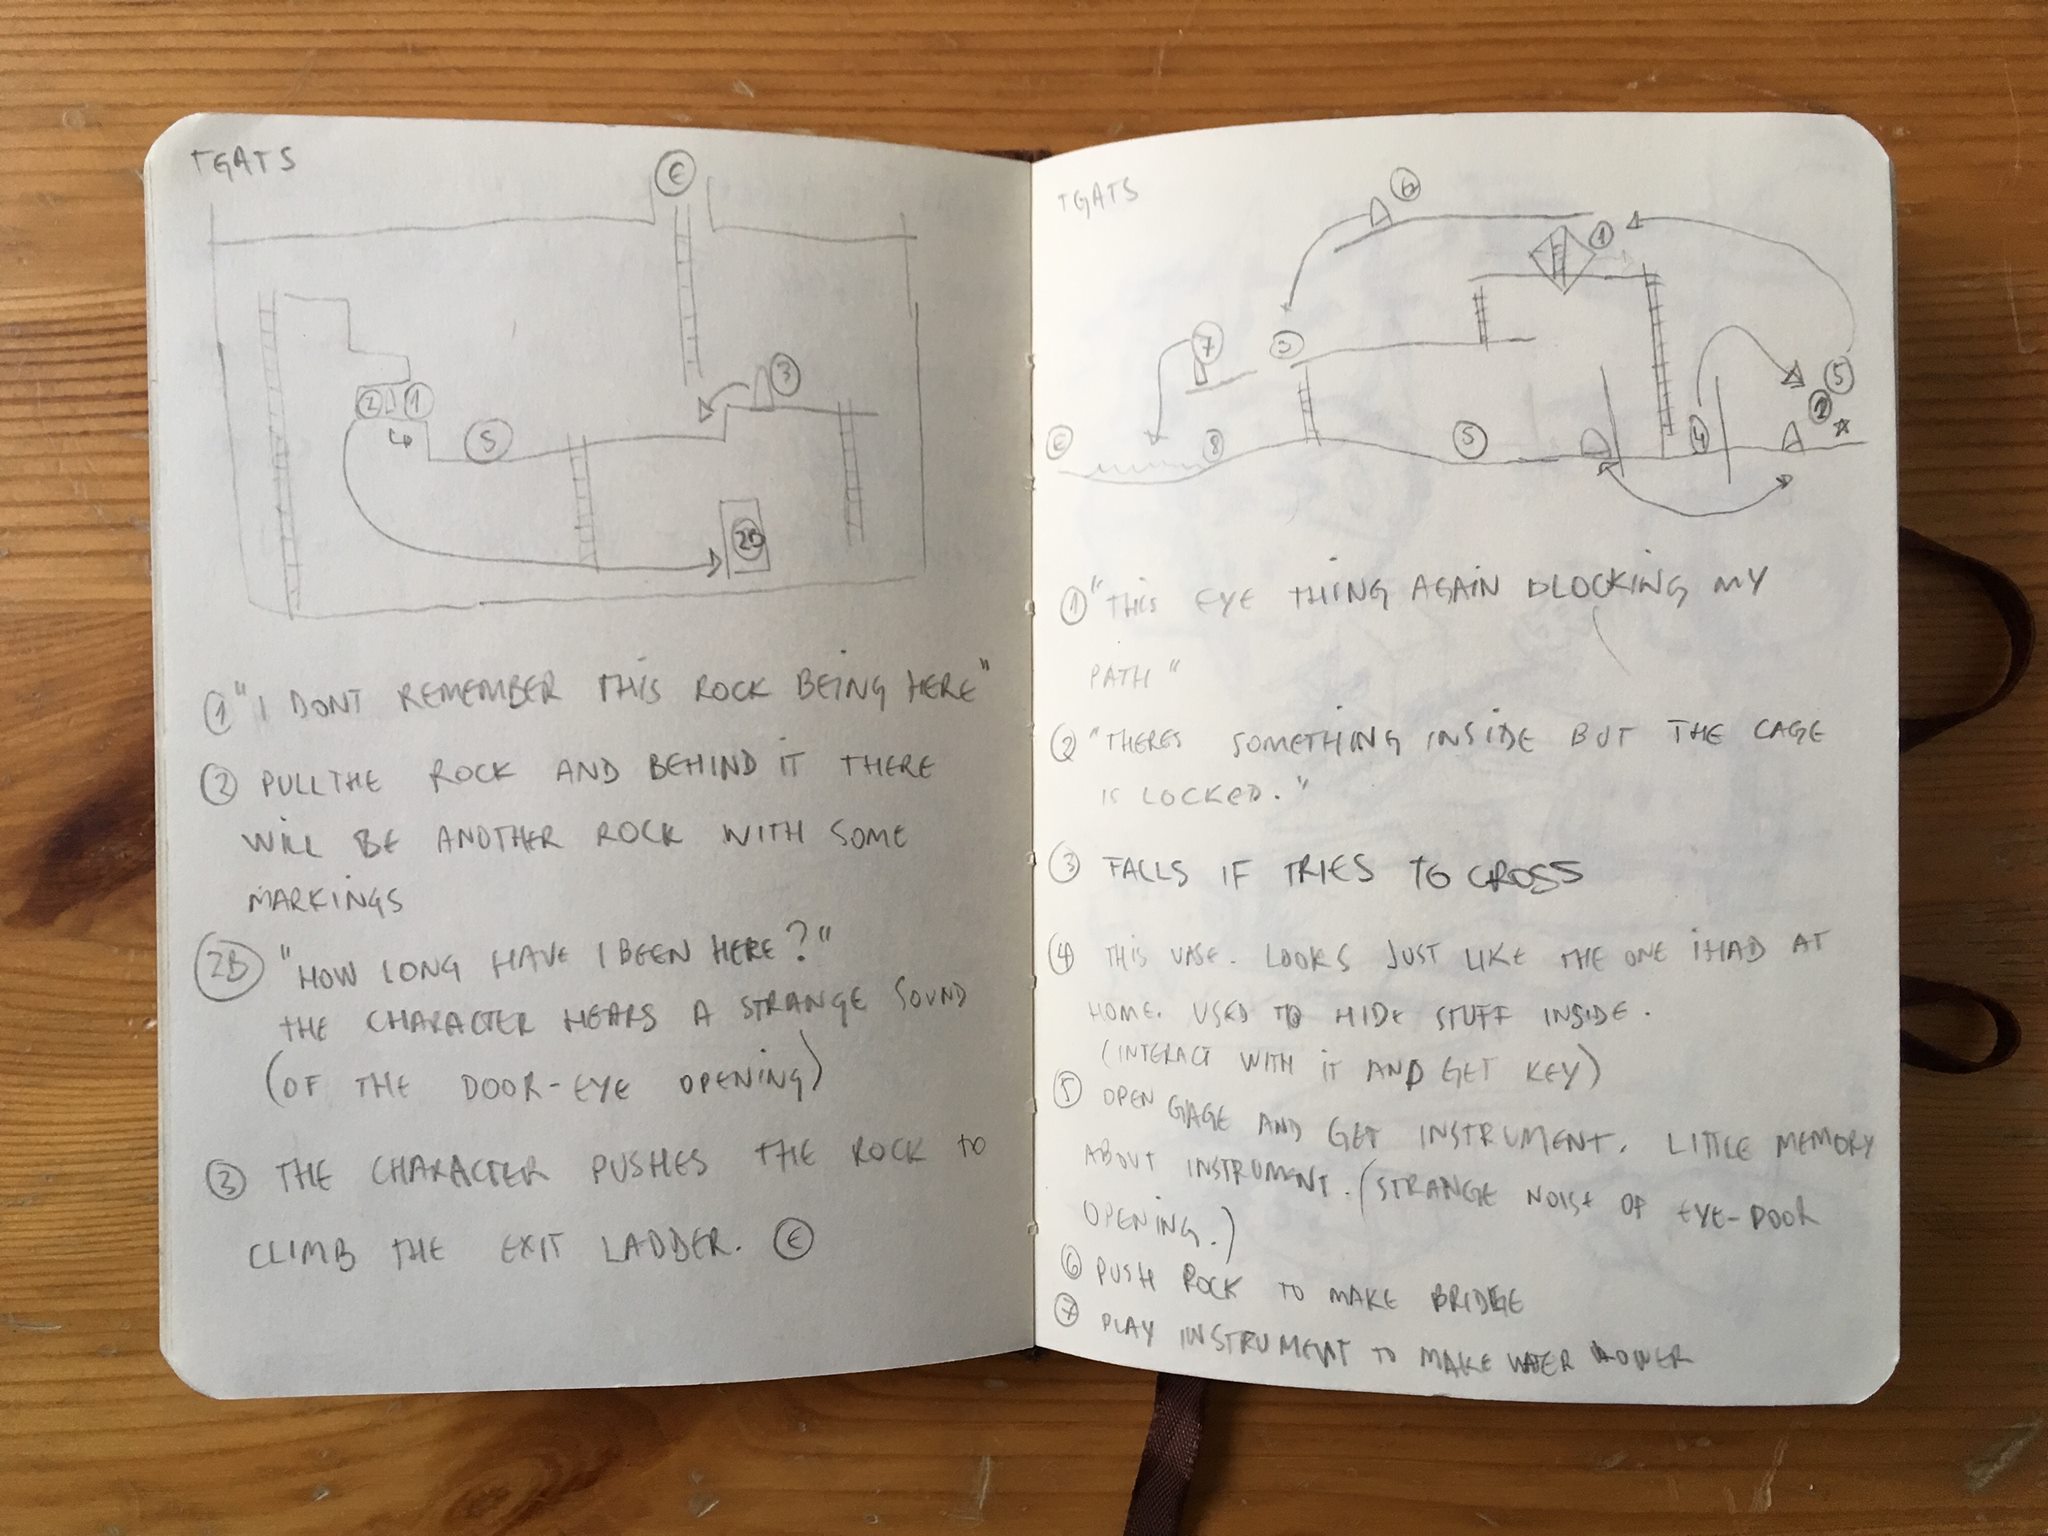 TGATS
E
3
2 1
S
2B
1 "I DONT REMEMBER THIS ROCK BEING HERE"
2 PULL THE ROCK AND BEHIND IT THERE
WILL BE ANOTHER ROCK WITH SOME
MARKINGS
2B "HOW LONG HAVE I BEEN HERE?"
THE CHARACTER HEARS A STRANGE SOUND
(OF THE DOOR-EYE OPENING)
3 THE CHARACTER PUSHES THE ROCK TO
CLIMB THE EXIT LADDER. E
TGATS
6
1
7
3
5
2
E
8
S
4
1 "THIS EYE THING AGAIN BLOCKING MY
PATH"
2 "THERES SOMETHING INSIDE BUT THE CAGE
IS LOCKED."
3 FALLS IF TRIES TO CROSS
4 THIS VASE. LOOKS JUST LIKE THE ONE I HAD AT
HOME. USED TO HIDE STUFF INSIDE.
(INTERACT WITH IT AND GET KEY)
5 OPEN GAGE AND GET INSTRUMENT. LITTLE MEMORY
ABOUT INSTRUMENT. (STRANGE NOISE OF EYE-DOOR
OPENING.)
6 PUSH ROCK TO MAKE BRIDGE
7 PLAY INSTRUMENT TO MAKE WATER LOWER